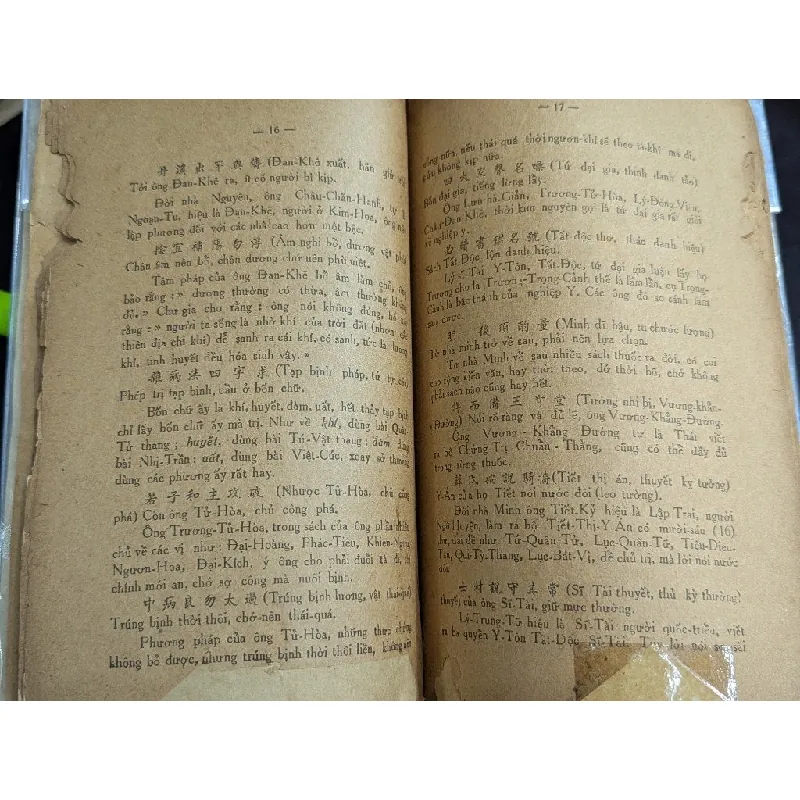 — 16 —
丹溪出罕與儔 (Đan-Khê xuất, hãn giữ
Tới ông Đan-Khê ra, ít có người bì kịp.
Đời nhà Nguyên, ông Châu-Chấn-Hanh, tự
Ngạn-Tu, hiệu là Đan-Khê, người ở Kim-Hoa, ông
lập phương đối với các nhà cao hơn một bậc.
陰宜補陽勿浮 (Âm nghi bổ, dương vật phù)
Chân âm nên bổ, chân dương chớ nên phù việt.
Tâm pháp của ông Đan-Khê bổ âm làm gốc, ông
bảo rằng: » dương thường có thừa, âm thường không
đủ. » Chư gia cho rằng: ông nói không đúng, họ
rằng: » người ta sống là nhờ khí của trời đất (nhơn
thiên địa chi khí) để sanh ra cái khí, có sanh, tức là dương
khí, tinh huyết đều hóa sinh vậy. »
雜病法四字求 (Tạp bịnh pháp, tứ tự cầu)
Phép trị tạp bịnh, cầu ở bốn chữ.
Bốn chữ ấy là khí, huyết, đàm, uất, hết thảy tạp bịnh
chỉ lấy bốn chữ ấy mà trị. Như về khí, dùng bài
Tử thang; huyết, dùng bài Tứ-Vật thang; đàm dùng
bài Nhị-Trần; uất, dùng bài Việt-Cúc, xoay sở thường
dùng các phương ấy rất hay.
若子和主攻破 (Nhược Tử-Hòa, chủ công
phá) Còn ông Tử-Hòa, chủ công phá.
Ông Trương-Tử-Hòa, trong sách của ông phần nhiều
chủ về các vị như: Đại-Hoàng, Phác-Tiêu, Khiên-Ngưu
Ngươn-Hoa, Đại-Kích, ý ông cho phải đuổi tà đi, thì
chính mới an, chớ sợ công mà nuôi bịnh.
中病良勿太過 (Trúng bịnh lương, vật thái-quá)
Trúng bịnh thời thôi, chớ-nên thái-quá.
Phương pháp của ông Tử-Hòa, những thực chứng
không bỏ được, nhưng trúng bịnh thời thôi liền, không nên
— 17 —
uống nữa, nếu thái quá thời ngươn-khí sẽ theo tà-khí mà đi,
cứu không kịp nữa.
四大家聲名噪 (Tứ đại gia, thinh danh táo)
Bốn đại gia, tiếng lừng lẫy.
Ông Lưu-Hà-Giản, Trương-Tử-Hòa, Lý-Đông-Viên,
Châu-Đan-Khê, thời kim nguyên gọi là tứ đại gia rất giỏi
về nghiệp y.
(Tất-độc thơ, thác danh hiệu)
Sách Tất-Độc, lộn danh hiệu.
Lý-Sĩ-Tài Y-Tôn, Tất-Độc, tứ đại gia luận lấy họ
Trương cho là Trương-Trọng-Cảnh thế là lầm lẫn, cụ Trọng-
Cảnh là bậc thánh của nghiệp Y. Các ông đó so sánh làm
sao được.
明以後須酌量 (Minh dĩ hậu, tu chước lượng)
Từ nhà Minh trở về sau, phải nên lựa chọn.
Từ nhà Minh về sau nhiều sách thuốc ra đời, có cái
cao rộng nên văn, hay thời theo, dở thời bỏ, chớ không
phải sách nào cũng hay hết.
王肯堂 (Tương nhi bị, Vương-khẳng-
Đường) Nói rõ ràng và đủ là, ông Vương-Khẳng-Đường.
Ông Vương - Khẳng Đường tự là Thái viết
ra bộ Chứng Trị Chuẩn - Thằng, cũng có thể dạy đủ
trong rừng thuốc.
薛氏按說騎牆 (Tiết thị án, thuyết kỵ tường)
Y-Án của họ Tiết nói nước đôi (leo tường).
Đời nhà Minh ông Tiết-Kỷ hiệu là Lập Trai, người
Ngô-Huyện, làm ra bộ Tiết-Thị-Y Án có mười-sáu (16)
thứ, đại để như Tứ-Quân-Tử, Lục-Quân-Tử, Tiêu-Diêu-
Tán, Quy-Tỳ-Thang, Lục-Bát-Vị, để chủ trị, mà lời nói nước
đôi
士材說守其常 (Sĩ Tài thuyết, thủ kỳ thường)
thuyết của ông Sĩ-Tài, giữ mực thường.
Lý-Trung-Tử hiệu là Sĩ-Tài người quốc-triều, viết
ra ba quyền Y-Tôn Tất-Độc, Sĩ-Tài. Tuy lời nói